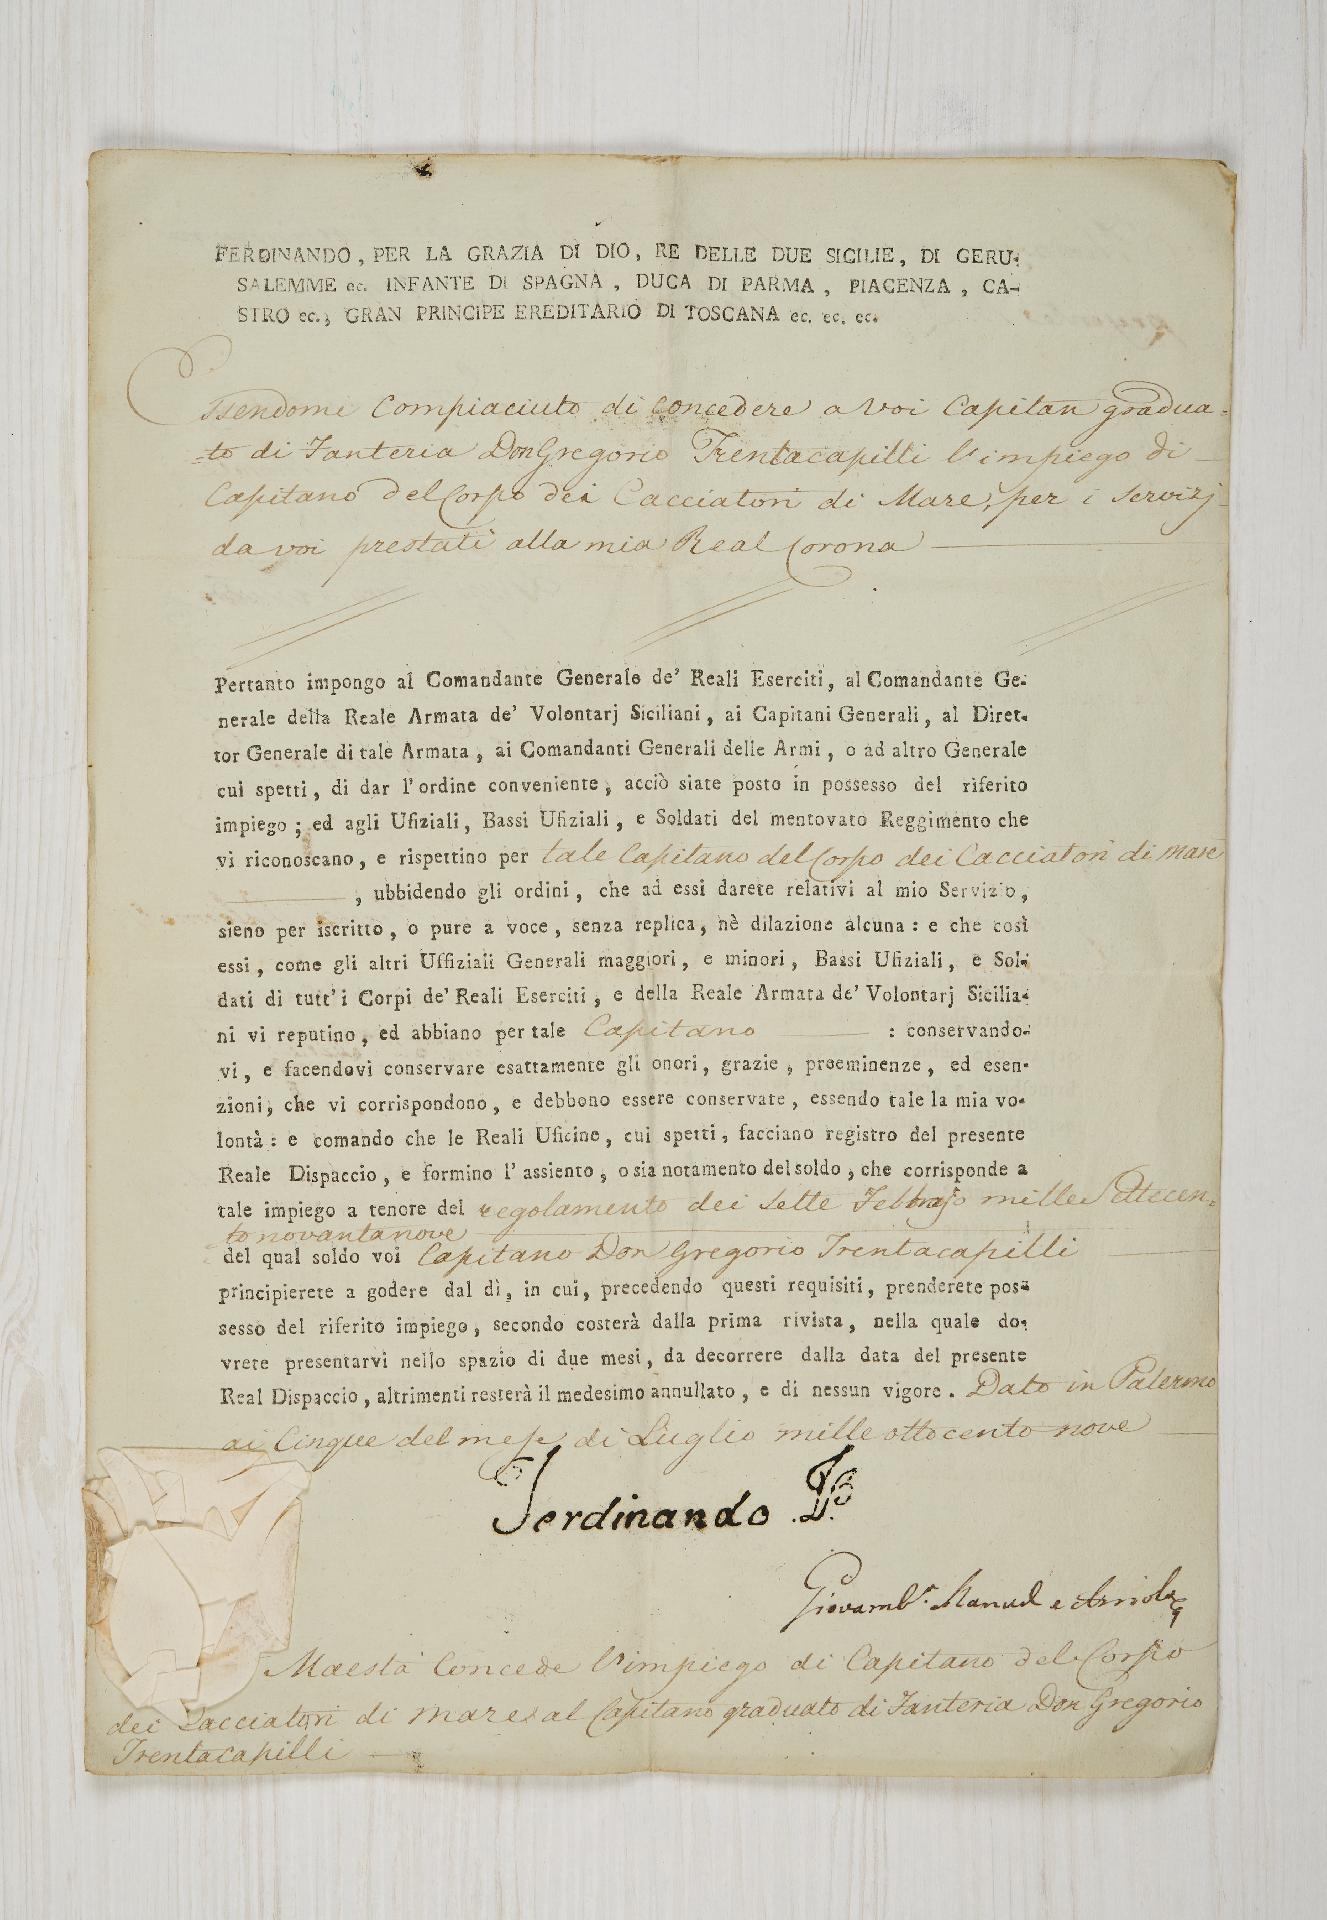 FERDINANDO, PER LA GRAZIA DI DIO, RE DELLE DUE SICILIE, DI GERU-
SALEMME ec. INFANTE DI SPAGNA, DUCA DI PARMA, PIACENZA, CA-
STRO ec., GRAN PRINCIPE EREDITARIO DI TOSCANA ec. ec. ec.
Essendomi Compiaciuto di concedere a voi Capitan gradua-
to di Fanteria Don Gregorio Trentacapilli l'impiego di
Capitano del Corpo dei Cacciatori di Mare, per i servizj
da voi prestati alla mia Real Corona
Pertanto impongo al Comandante Generale de' Reali Eserciti, al Comandante Ge-
nerale della Reale Armata de' Volontarj Siciliani, ai Capitani Generali, al Diret-
tor Generale di tale Armata, ai Comandanti Generali delle Armi, o ad altro Generale
cui spetti, di dar l'ordine conveniente, acciò siate posto in possesso del riferito
impiego; ed agli Ufiziali, Bassi Ufiziali, e Soldati del mentovato Reggimento che
vi riconoscano, e rispettino per tale Capitano del Corpo dei Cacciatori di mare
, ubbidendo gli ordini, che ad essi darete relativi al mio Servizio,
sieno per iscritto, o pure a voce, senza replica, nè dilazione alcuna: e che così
essi, come gli altri Uffiziali Generali maggiori, e minori, Bassi Ufiziali, e Sol-
dati di tutt'i Corpi de' Reali Eserciti, e della Reale Armata de' Volontarj Sicilia-
ni vi reputino, ed abbiano per tale Capitano : conservando-
vi, e facendovi conservare esattamente gli onori, grazie, preeminenze, ed esen-
zioni, che vi corrispondono, e debbono essere conservate, essendo tale la mia vo-
lontà: e comando che le Reali Uficine, cui spetti, facciano registro del presente
Reale Dispaccio, e formino l'assiento, o sia notamento del soldo, che corrisponde a
tale impiego a tenore del regolamento dei sette Febbrajo mille Settecen-
to novantanove
del qual soldo voi Capitano Don Gregorio Trentacapilli
principierete a godere dal dì, in cui, precedendo questi requisiti, prenderete pos-
sesso del riferito impiego, secondo costerà dalla prima rivista, nella quale do-
vrete presentarvi nello spazio di due mesi, da decorrere dalla data del presente
Real Dispaccio, altrimenti resterà il medesimo annullato, e di nessun vigore. Dato in Palermo
ai Cinque del mese di Luglio mille ottocento nove
Ferdinando
Giovamb. Manuel e Arriola
Maestà Concede l'impiego di Capitano del Corpo
dei Cacciatori di mare al Capitano graduato di Fanteria Don Gregorio
Trentacapilli